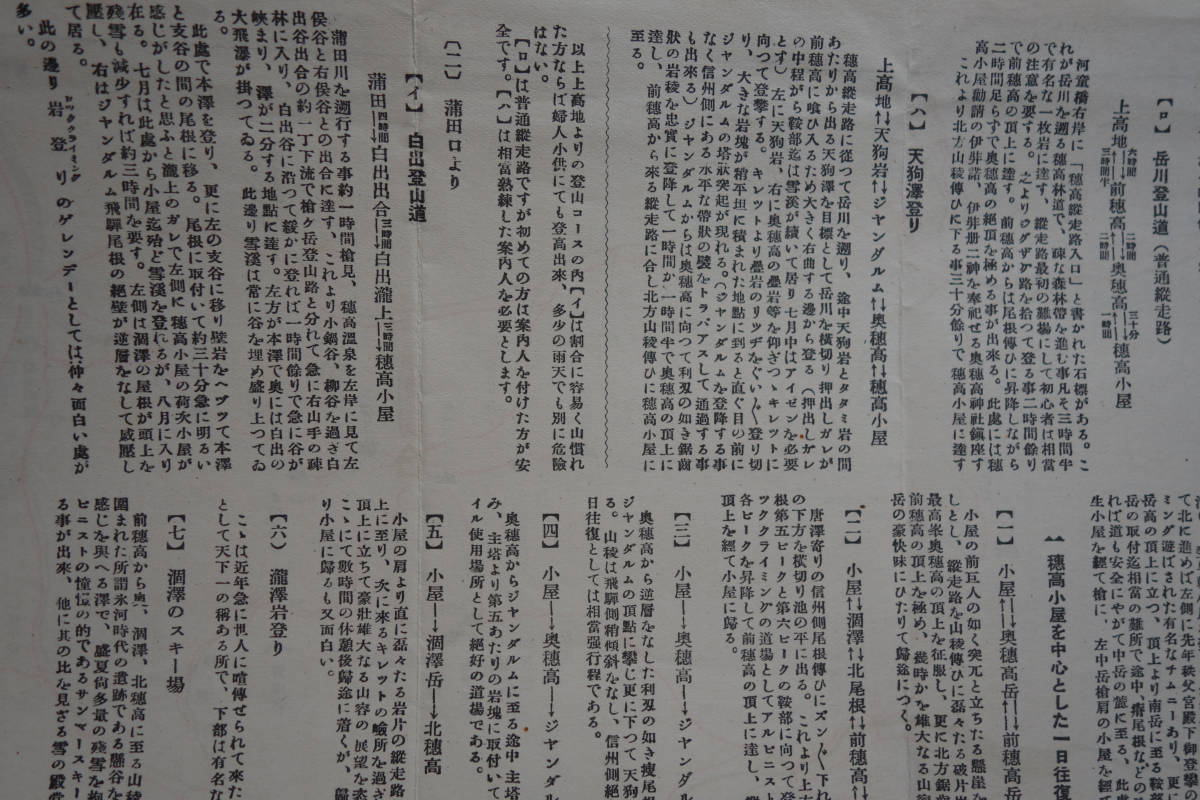 【ロ】 岳川登山道(普通縦走路)
上高地 六時間 三時間半 前穂高 二時間 二時間 奥穂高 三十分 一時間 穂高小屋
河童橋右岸に「穂高縦走路入口」と書かれた石標がある。こ
れが岳川を遡る穂高林道で、疎な森林帯を進む事凡そ三時間半
で有名な一枚岩に達す、縦走路最初の難場にして初心者は相当
の注意を要する。之よりジグザグ路を拾つて登る事二時間余り
で前穂高の頂上に達す。前穂高からは尾根伝ひに昇降しながら
二時間足らずで奥穂高の絶頂を極める事が出来る。此処には穂
高小屋勧請の伊弉諾、伊弉册二神を奉祀せる奥穂高神社鎮座す
これより北方山稜伝ひに下る事三十分余りで穂高小屋に達す
【ハ】 天狗澤登り
上高地↓↑天狗岩↓↑ジヤンダルム↓↑奥穂高↓↑穂高小屋
穂高縦走路に従つて岳川を遡り、途中天狗岩とタタミ岩の間
あたりから出る天狗澤を目標として岳川を横切り押出しガレが
前穂高に喰ひ入るため大きく右曲する辺から登る(押出しガレ
の中程から鞍部迄は雪渓が続いて居り七月中はアイゼンを必要
とす)左に天狗岩、右に奥穂高の畳岩等を仰ぎつゝキレットに
向つて登攀する。キレットより畳岩のリッヂをぐい〱登り切
り、大きな岩塊が稍平坦に積まれた地點に到ると直ぐ目の前に
ジヤンダルムの塔状突起が現れる。(ジヤンダルムを登降する事
なく信州側にある水平な帯状の襞をトラバアスして通過する事
も出来る)ジヤンダルムからは奥穂高に向つて利刃の如き鋸歯
状の岩稜を忠実に登降して一時間か一時間半で奥穂高の頂上に
達し、前穂高から来る縦走路に合し北方山稜伝ひに穂高小屋に
至る。
以上上高地よりの登山コースの内【イ】は割合に容易く山慣れ
た方ならば婦人小供にても登高出来、多少の雨天でも別に危険
はない。
【ロ】は普通縦走路ですが初めての方は案内人を付けた方が安
全です。【ハ】は相当熟練した案内人を必要とします。
〔二〕 蒲田口より
【イ】 白出登山道
蒲田 四時間 白出出合 三時間 白出瀧上 三時間 穂高小屋
蒲田川を遡行する事約一時間槍見、穂高温泉を左岸に見て左
俣谷と右俣谷との出合に達す。これより小鍋谷、柳谷を過ぎ白
出谷出合の約一丁下流で槍ケ岳登山路と分れて、急に右山手の疎
林に入り、白出谷に沿つて緩かに登れば一時間余りで急に谷が
峽まり、澤が二分する地點に達す。左方が本澤で奥には白出の
大飛瀑が掛つてゐる。此邊り雪渓は常に谷を埋め盛り上つてゐ
る。
此處で本澤を登り、更に左の支谷に移り壁岩をヘヅツて本澤
と支谷の間の尾根に移る。尾根に取付いて約三十分急に明るい
感じがしたと思ふと瀧上のガレで左側に穂高小屋の荷次小屋が
在る。七月は此處から小屋迄殆ど雪渓を登れるのが、八月に入り
残雪も減少すれば約三時間を要す。左側は涸澤の屋根が頭上を
圧し、右はジヤンダルム飛騨尾根の絶壁が逆層をなして威圧し
て居る。
此の邊り岩登りのゲレンデーとしては仲々面白い處が
ロッククライミング
多い。
て北に進めば左側に先年秩父宮殿下御登攀の
ミンダ遊ばされた有名なチムニーあり、更に
岳高の頂上に立つ、頂上より南岳に至る鞍部
岳の取付迄相当の難所で途中、
れば道も安全にやがて中岳の
生小屋を経て槍に、左中岳槍肩の小屋を経て
穂高小屋を中心とした一日往復
【一】 小屋↓↑奥穂高岳↓↑前穂高岳
小屋の前巨人の如く突兀と立ちたる懸崖を
しとし、縦走路を山稜伝ひに磊々たる破片岩
最高峯奥穂高の頂上を征服し、更に北方鋸歯
前穂高の頂上を極め、幾時かを雄大なる山
岳の豪快味にひたりて帰途につく。
【二】 小屋↓↑涸澤↓↑北尾根↓↑前穂高
唐澤寄りの信州側尾根伝ひにズン〱下れ
の下方を横切り池の平に出る。これより上
根の第五ピークと第六ピークの鞍部に向つて登
ツククライミングの道場としてアルピニスト
各ピークを昇降して前穂高の頂上に達し、
頂上を経て小屋に帰る。
【三】 小屋―奥穂高―ジヤンダル
奥穂高から逆層をなした利刃の如き痩尾根
ジヤンダルムの頂點に攀じ更に下つて天狗
る。山稜は飛騨側稍傾斜をなし、信州側絶
日往復としては相当强行程である。
【四】 小屋―奥穂高―ジヤンダル
奥穂高からジヤンダルムに至る途中主塔
み、主塔より第五あたりの岩塊に取付いて
イル使用場所として絶好の道場である。
【五】 小屋―涸澤岳―北穂高
小屋の肩より直に磊々たる岩片の縦走路
上に至り、次に来るキレットの嶮所を過ぎ
頂上に立ちて豪壮雄大なる山容の展望を恣
こゝにて数時間の休憩後帰途に着くが、帰
り小屋に帰るも又面白い。
【六】 瀧澤岩登り
こゝは近年急に世人に喧伝せられて来た
として天下一の称ある所で、下部は有名な
【七】 涸澤のスキー場
前穂高から奥、涸澤、北穂高に至る山稜
圍まれた所謂氷河時代の遺跡である懸谷を
感じを與へる澤で、盛夏尙多量の残雪を抱
ピニストの憧憬の的であるサンマースキー
る事が出来、他に其の比を見ざる雪の殿堂